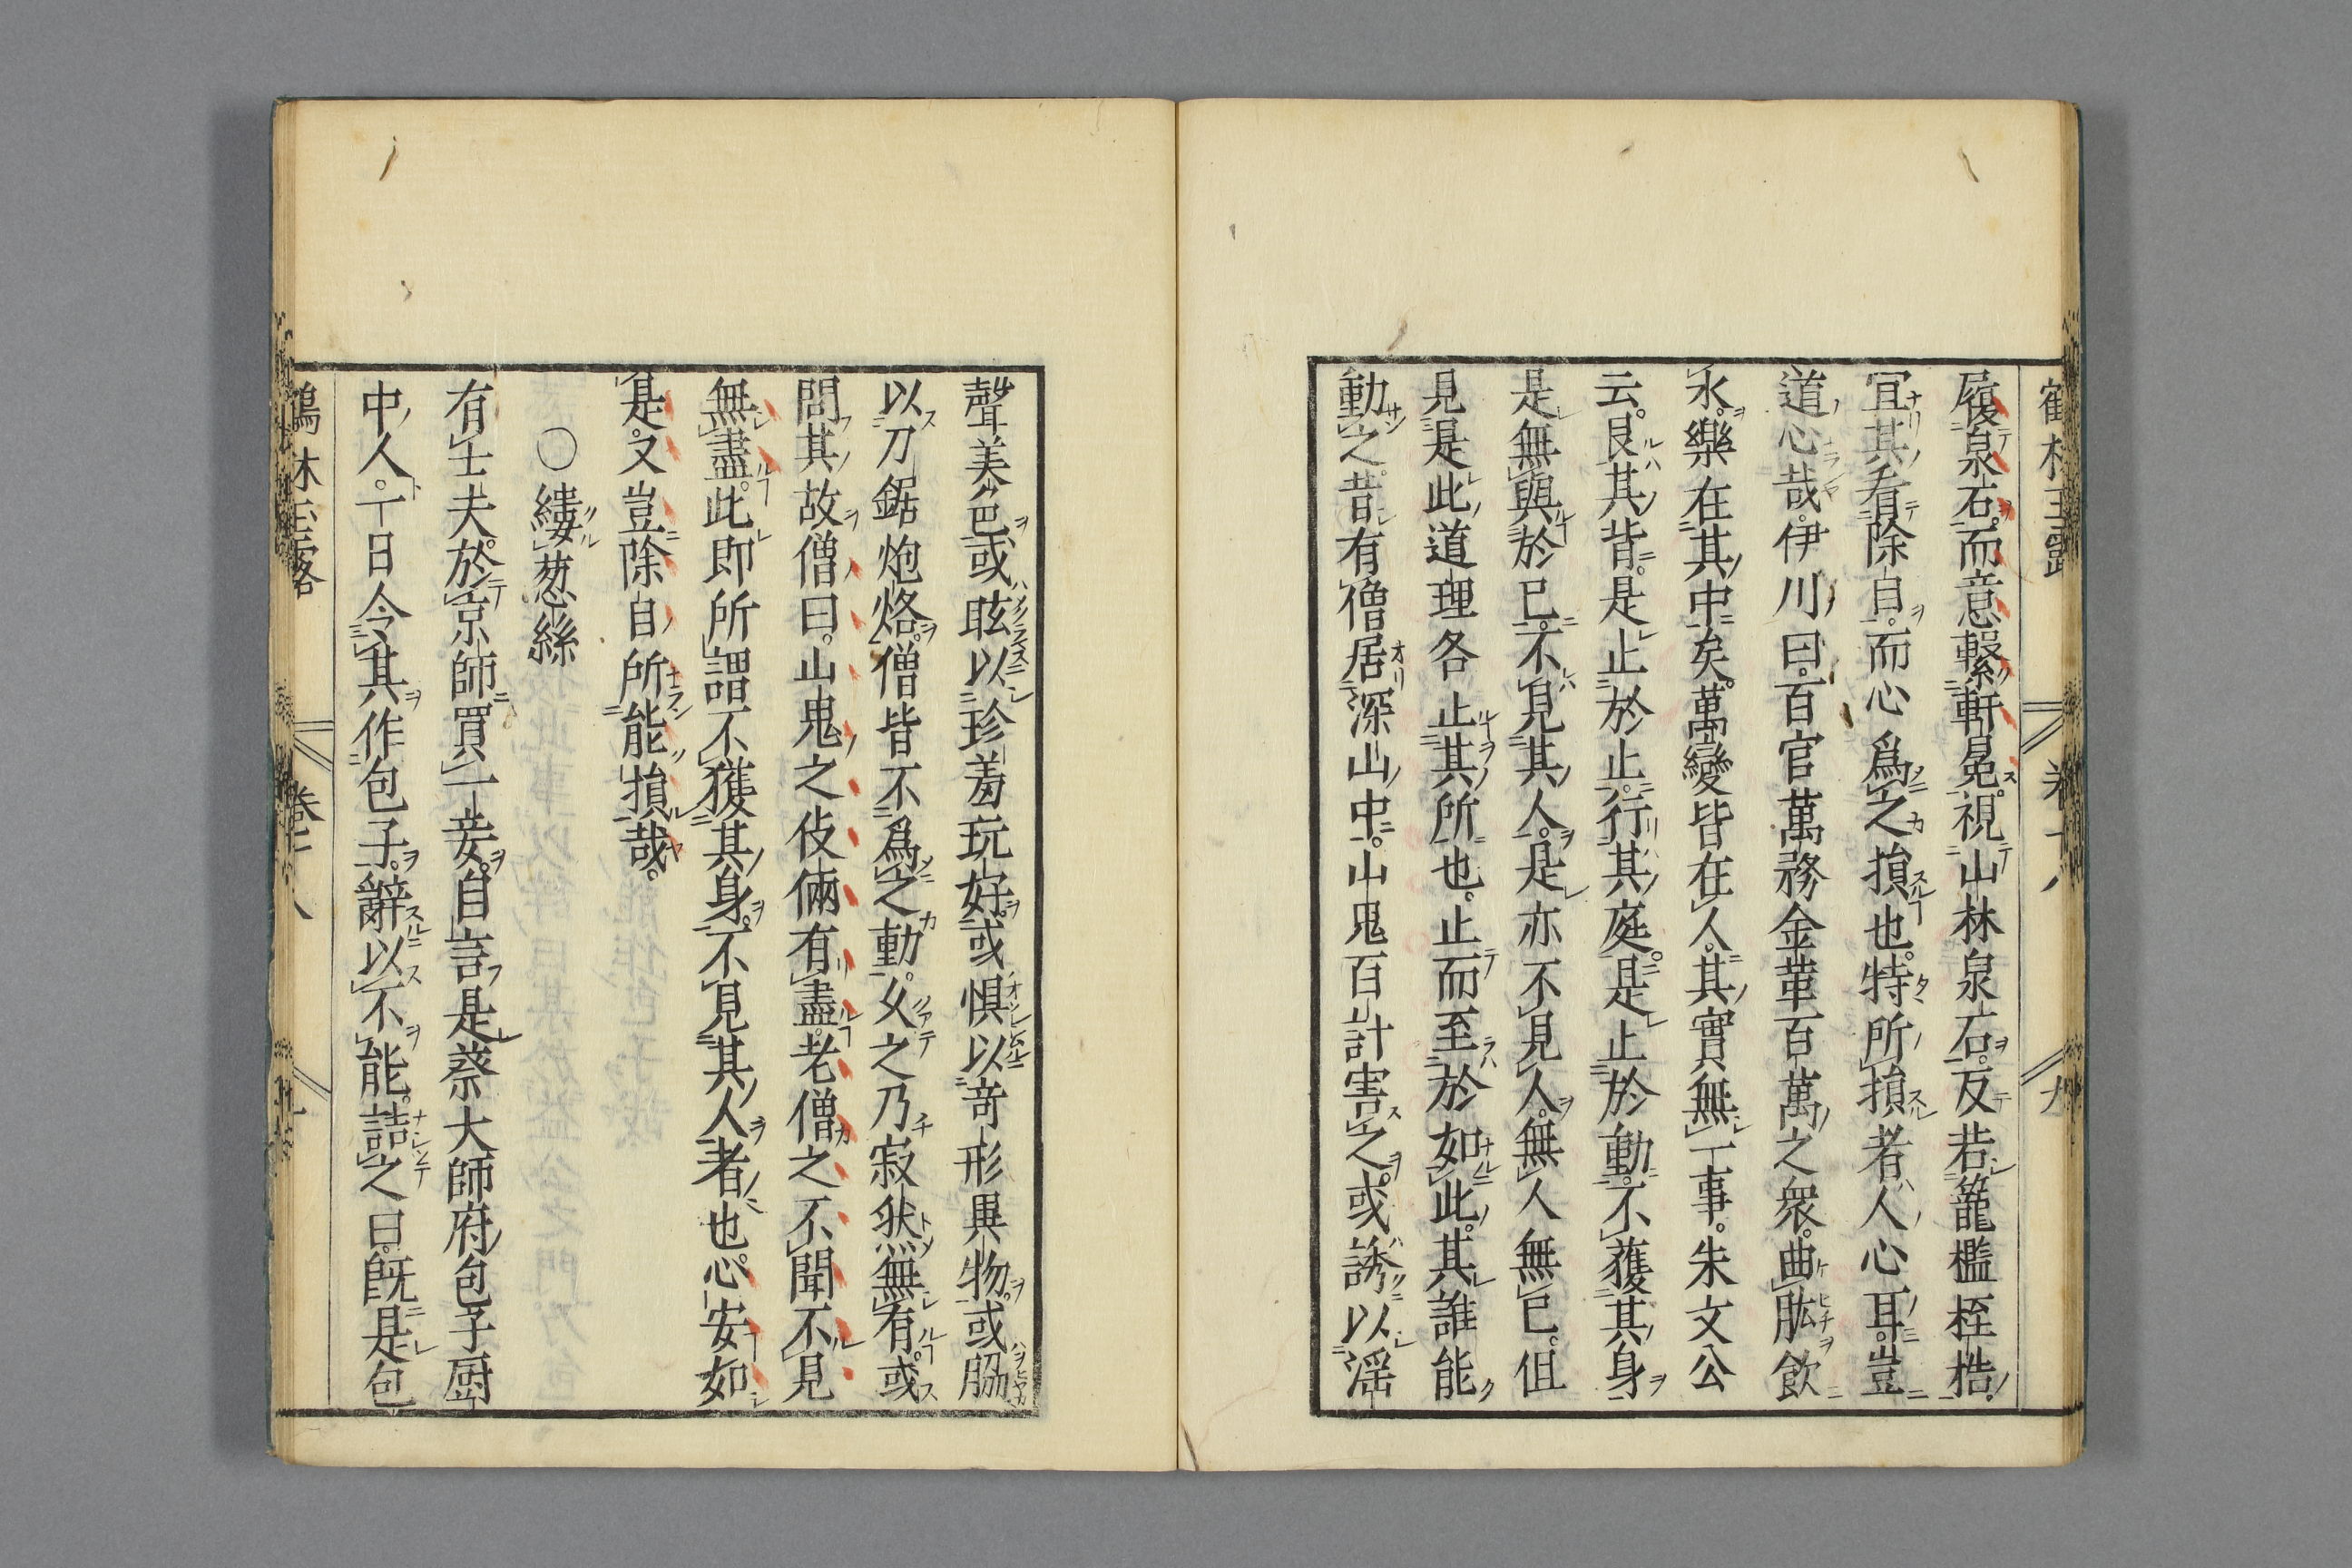 履泉石。而意繫軒冕。視山林泉石。反若籠檻桎梏。
宜其看除自。而心爲之損也。特所損者人心耳。豈
道心哉。伊川曰。百官萬務金革百萬之衆。曲肱飲
水。樂在其中矣。萬變皆在人。其實無一事。朱文公
云。艮其背。是止於止。行其庭。是止於動。不獲其身
是無與於已。不見其人。是亦不見人。無人無已。但
見是此道理各止其所也。止而至於如此。其誰能
動之。昔有僧居深山中。山鬼百計害之。或誘以淫
聲美色。或眩以珍羞玩好。或惧以奇形異物。或脇
以刀鋸炮烙。僧皆不爲之動。久之乃寂然無有。或
問其故。僧曰。山鬼之伎倆有盡。老僧之不聞不見
無盡。此即所謂不獲其身。不見其人者也。心安如
是。又豈除自所能損哉。
〇縷葱絲
有士夫。於京師買一妾。自言是蔡大師府包子厨
中人。一日令其作包子。辭以不能。詰之曰。既是包